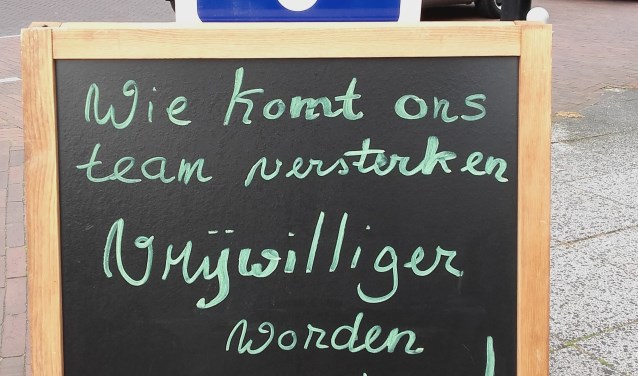 Wie komt ons
team versterken
Vrijwilliger
worden